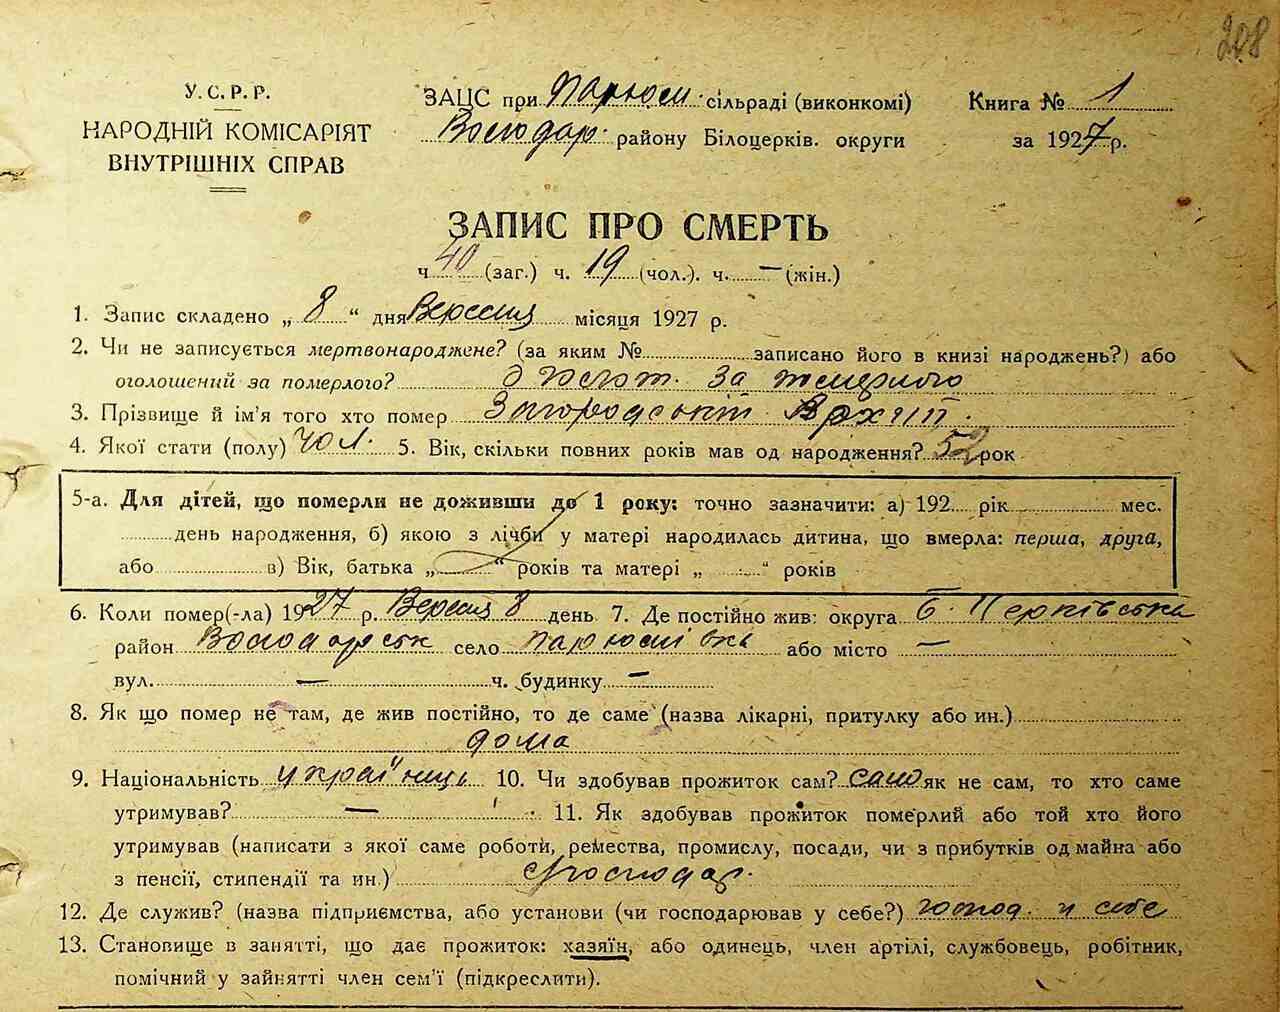 208
У.С.Р.Р.
НАРОДНІЙ КОМІСАРІЯТ
ВНУТРІШНІХ СПРАВ
ЗАЦС при Пархом. сільраді (виконкомі)
Володар. району Білоцерків. округи
Книга № 1
за 1927 р.
ЗАПИС ПРО СМЕРТЬ
ч 40 (заг.) ч. 19 (чол.). ч. — (жін.)
1. Запис складено „ 8 “ дня Вересня місяця 1927 р.
2. Чи не записується мертвонароджене? (за яким № записано його в книзі народжень?) або
оголошений за померлого? за померлого
3. Прізвище й ім’я того хто помер Загородський Архип.
4. Якої стати (полу) чол. 5. Вік, скільки повних років мав од народження? 52 рок
5-а. Для дітей, що померли не доживши до 1 року: точно зазначити: а) 192 рік мес.
день народження, б) якою з лічби у матері народилась дитина, що вмерла: перша, друга,
або в) Вік, батька „ “ років та матері „ “ років
6. Коли помер(-ла) 1927 р. Вересня 8 день 7. Де постійно жив: округа Б. Церківська
район Володарськ село Пархомівка або місто —
вул. — ч. будинку —
8. Як що помер не там, де жив постійно, то де саме (назва лікарні, притулку або ин.)
дома
9. Національність українець 10. Чи здобував прожиток сам? сам як не сам, то хто саме
утримував? — 11. Як здобував прожиток померлий або той хто його
утримував (написати з якої саме роботи, ремества, промислу, посади, чи з прибутків од майна або
з пенсії, стипендії та ин.)
12. Де служив? (назва підприємства, або установи (чи господарював у себе?) господ. у себе
13. Становище в занятті, що дає прожиток: хазяїн, або одинець, член артілі, службовець, робітник,
помічний у зайнятті член сем’ї (підкреслити).